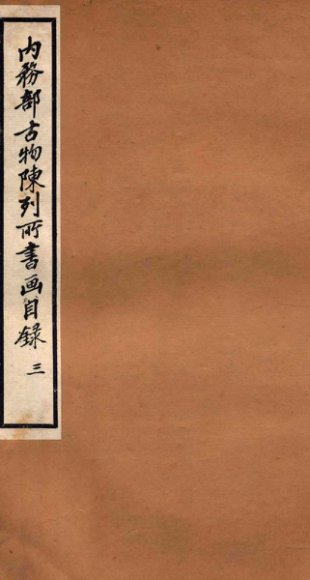 内務部古物陳列所書画目録 三